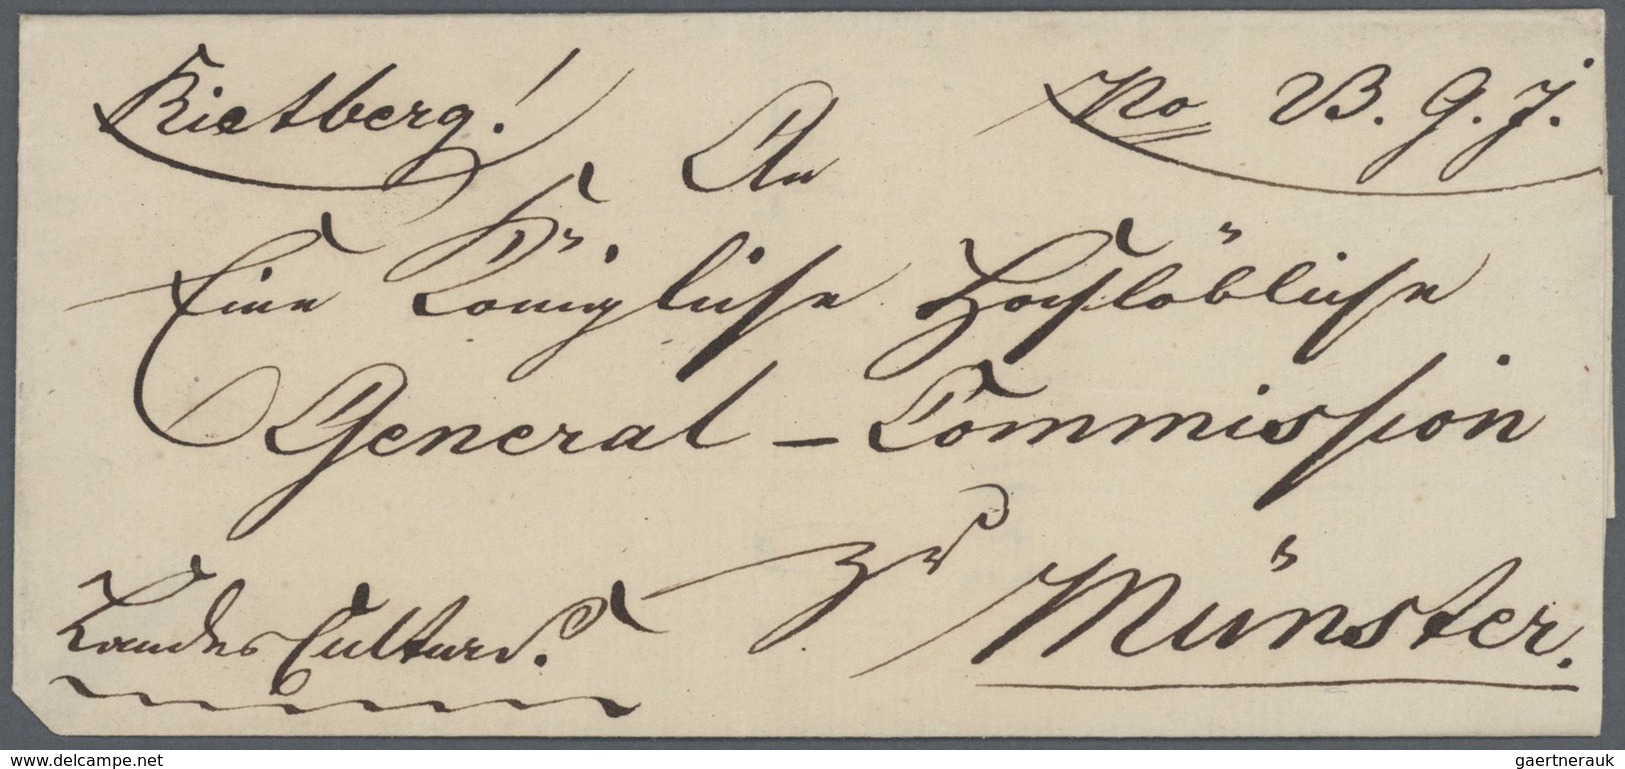 Rietberg! No B. G. J.
An
Eine Königliche Hochlöbliche
General-Commission
zu
Münster.
Landes Cultur
delcampe.net
gaertnerauk